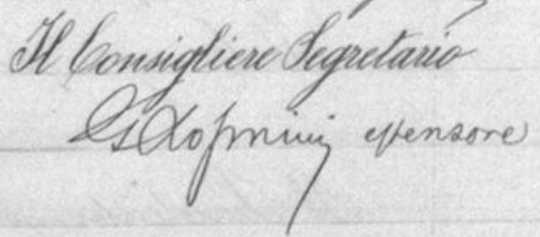 Il Consigliere Segretario
estensore